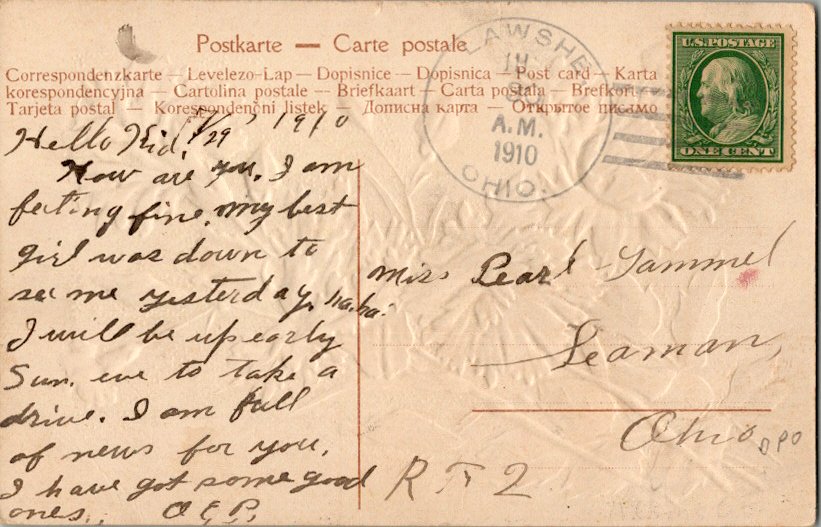 Postkarte — Carte postale
Correspondenzkarte — Levelezo-Lap — Dopisnice — Dopisnica — Post card — Karta
korespondencyjna — Cartolina postale — Briefkaart — Carta postala — Brefkort —
Tarjeta postal — Korespondenčni listek — Дописна карта — Открытое письмо
LAWSHE
A.M.
1910
OHIO.
U.S. POSTAGE
ONE CENT
7/29 1910
Hello Kid,
How are you. I am
feeling fine. my best
girl was down to
see me yesterday. ha. ha.
I will be up early
Sun. eve to take a
drive. I am full
of news for you.
I have got some good
ones.. O.E.P.
Miss Pearl Tammel
Seaman,
Ohio
DPO
R F 2